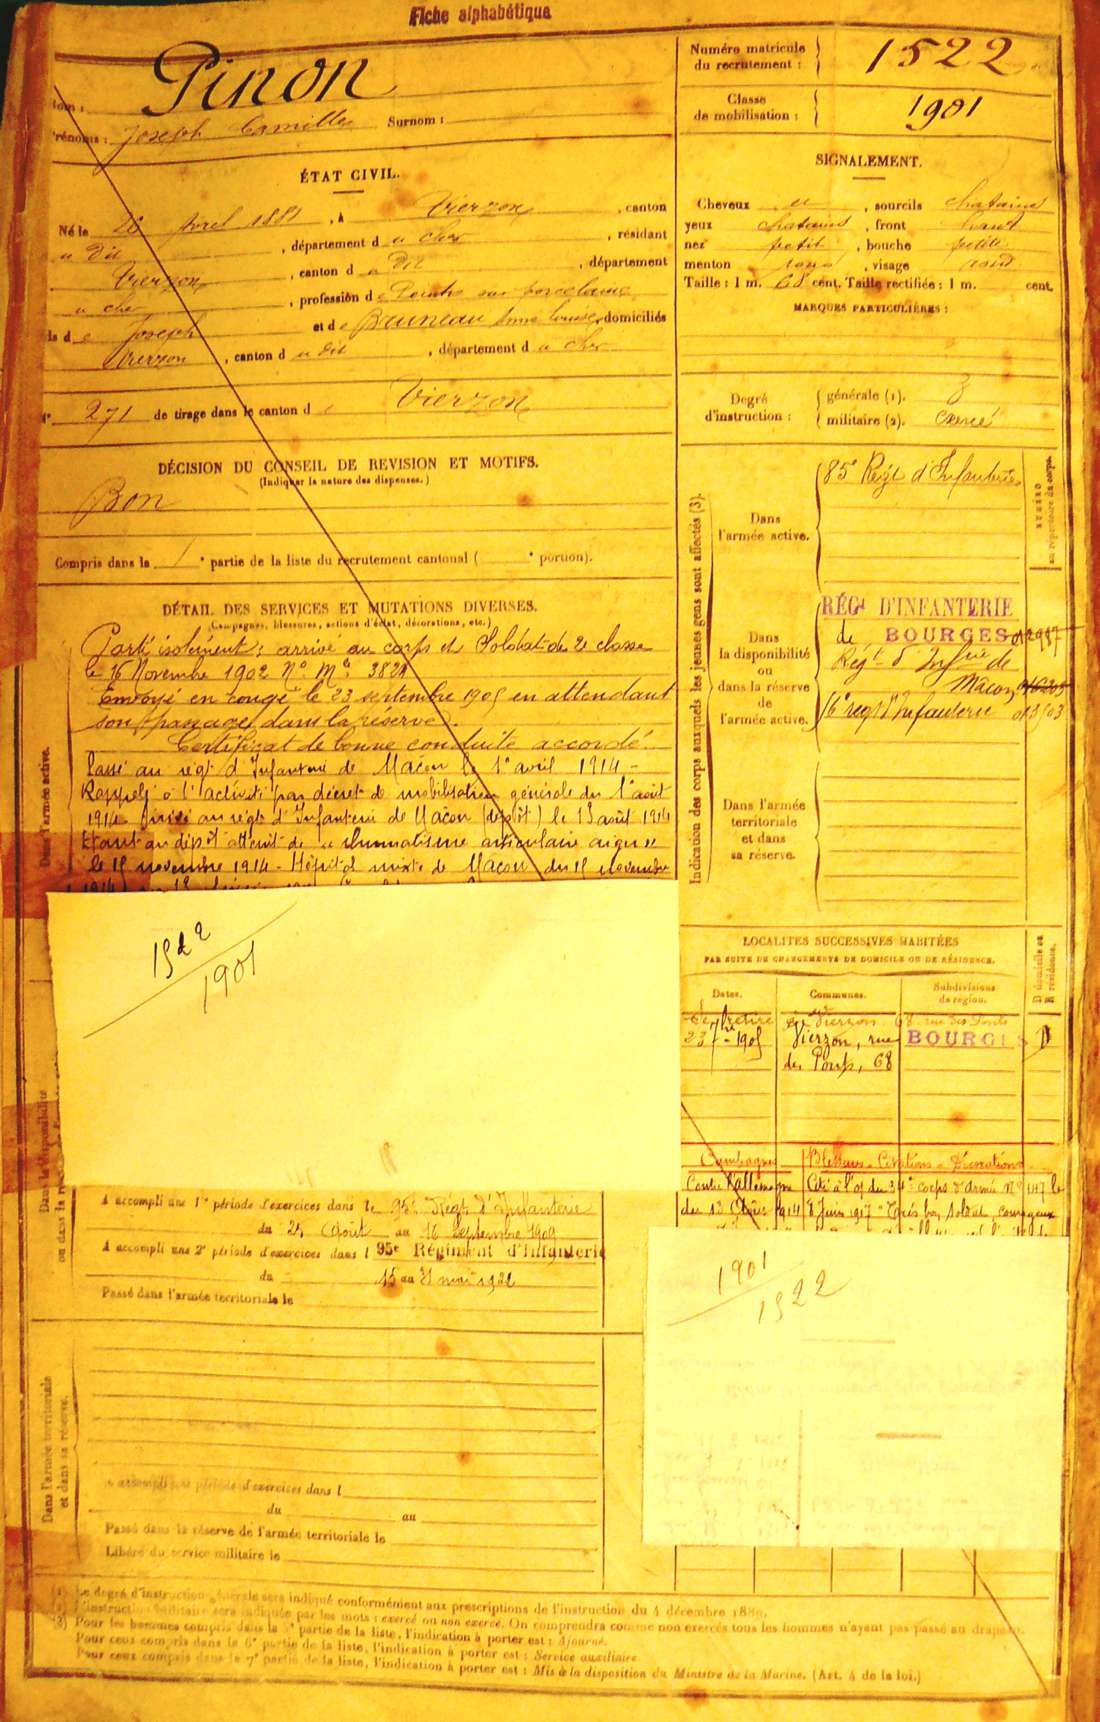 Fiche alphabétique
Pinon
Nom :
Prénoms : Joseph Camille Surnom :
Numéro matricule
du recrutement : 1522
Classe
de mobilisation : 1901
ÉTAT CIVIL.
Né le avril 1881, à Vierzon, canton
u dit, département d u Cher, résidant
Vierzon, canton d u dit, département
u cher, profession de Peintre sur porcelaine
ls d e Joseph et de Bruneau Anne Louise, domiciliés
Vierzon, canton d u dit, département d u cher
N° 271 de tirage dans le canton d e Vierzon
SIGNALEMENT.
Cheveux et, sourcils chatains
yeux chatains, front haut
nez petit, bouche petite
menton rond, visage rond
Taille : 1 m. 68 cent. Taille rectifiée : 1 m. cent.
MARQUES PARTICULIÈRES :
Degré
d'instruction :
générale (1). 3
militaire (2). exercé
DÉCISION DU CONSEIL DE REVISION ET MOTIFS.
(Indiquer la nature des dispenses.)
Bon
Compris dans la 1e partie de la liste du recrutement cantonal ( e portion).
DÉTAIL DES SERVICES ET MUTATIONS DIVERSES.
(Campagnes, blessures, actions d'éclat, décorations, etc.)
Parti isolément; arrivé au corps et Soldat de 2e classe
le 16 Novembre 1902 N° Mle
Envoyé en congé le 23 septembre 1905 en attendant
son passage dans la réserve.
Certificat de bonne conduite accordé.
Passé au régt d'Infanterie de Macon le 1er avril 1914 -
Rappelé à l'activité par décret de mobilisation générale du 1er août
1914. Arrivé au régt d'Infanterie de Mâcon (dépôt) le 13 août 1914
Etant au dépôt atteint de "rhumatisme articulaire aigu"
le 15 novembre 1914 - Hôpital mixte de Macon du 15 novembre
1914
Dans l'armée active.
Indication des corps auxquels les jeunes gens sont affectés (3).
NUMÉRO
au répertoire du corps.
Dans
l'armée active.
85e Régt d'Infanterie
Dans
la disponibilité
ou
dans la réserve
de
l'armée active.
RÉGt D'INFANTERIE
de BOURGES
Régt d'Infrie de
Macon
16e regt d'Infanterie
Dans l'armée
territoriale
et dans
sa réserve.
1522
1901
LOCALITÉS SUCCESSIVES HABITÉES
PAR SUITE DE CHANGEMENTS DE DOMICILE OU DE RÉSIDENCE.
D domicile ou
R résidence.
Dates. Communes. Subdivisions
de région.
Vierzon 68 rue des Ponts
23 7bre 1905 Vierzon, rue BOURGES D
des Ponts, 68
Campagnes Blessures - Citations - Décorations
Contre l'Allemagne Cité à l'of du corps d'armée N° 147 le
du 13 Août 1914 8 Juin 1917 "Très bon soldat courageux
Dans la disponibilité
ou dans la
A accompli une 1re période d'exercices dans le 95e Régt d'Infanterie
du 25 Août au 16 Septembre 1909
A accompli une 2e période d'exercices dans l 95e Régiment d'Infanterie
du 15 au 31 mai
Passé dans l'armée territoriale le
1901
1522
Dans l'armée territoriale
et dans sa réserve.
A accompli une période d'exercices dans l
du au
Passé dans la réserve de l'armée territoriale le
Libéré du service militaire le
(1) Le degré d'instruction générale sera indiqué conformément aux prescriptions de l'instruction du 4 décembre 1889.
(2) L'instruction militaire sera indiquée par les mots : exercé ou non exercé. On comprendra comme non exercés tous les hommes n'ayant pas passé au drapeau.
(3) Pour les hommes compris dans la 5e partie de la liste, l'indication à porter est : Ajourné.
Pour ceux compris dans la 6e partie de la liste, l'indication à porter est : Service auxiliaire.
Pour ceux compris dans la 7e partie de la liste, l'indication à porter est : Mis à la disposition du Ministre de la Marine. (Art. 4 de la loi.)